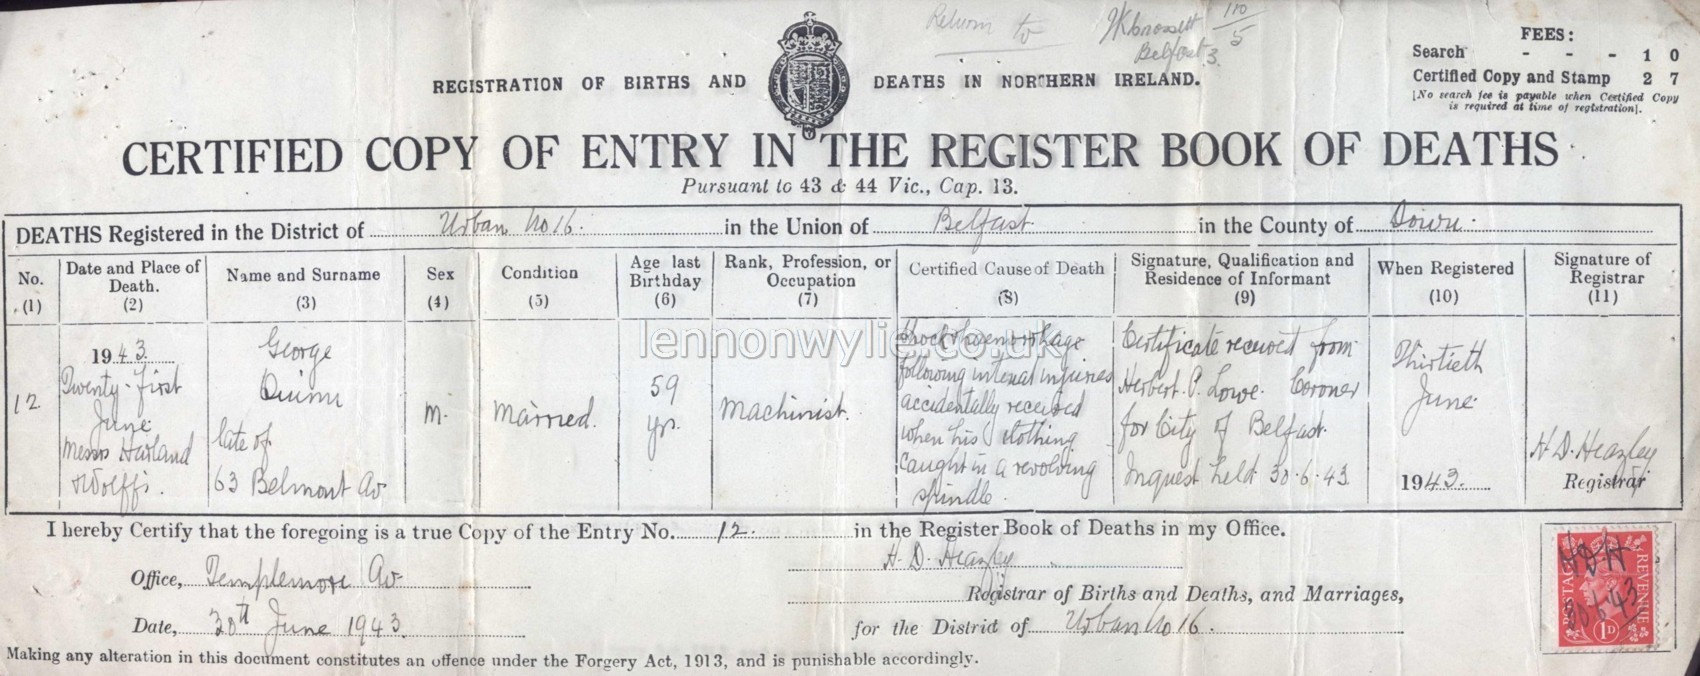 Return to
110/5
Belfast. 3.
REGISTRATION OF BIRTHS AND DEATHS IN NORTHERN IRELAND.
FEES:
Search - - - 1 0
Certified Copy and Stamp 2 7
[No search fee is payable when Certified Copy
is required at time of registration].
CERTIFIED COPY OF ENTRY IN THE REGISTER BOOK OF DEATHS
Pursuant to 43 & 44 Vic., Cap. 13.
DEATHS Registered in the District of Urban No 16. in the Union of Belfast. in the County of Down.
No.
(1)
Date and Place of
Death.
(2)
Name and Surname
(3)
Sex
(4)
Condition
(5)
Age last
Birthday
(6)
Rank, Profession, or
Occupation
(7)
Certified Cause of Death
(8)
Signature, Qualification and
Residence of Informant
(9)
When Registered
(10)
Signature of
Registrar
(11)
12
1943.
Twenty-first
June
Messrs Harland
& Wolffs.
George
Quinn
late of
63 Belmont Av
M.
Married.
59
yrs.
Machinist.
Shock & haemorrhage
following internal injuries
accidentally received
when his clothing
caught in a revolving
spindle.
Certificate received from
Herbert. P. Lowe. Coroner
for City of Belfast.
Inquest held 30.6.43.
Thirtieth
June
1943.
H. D. Heazley
Registrar
lennonwylie.co.uk
I hereby Certify that the foregoing is a true Copy of the Entry No. 12. in the Register Book of Deaths in my Office.
Office, Templemore Av
H. D. Heazley
Registrar of Births and Deaths, and Marriages,
Date, 30th June 1943.
for the District of Urban No 16.
Making any alteration in this document constitutes an offence under the Forgery Act, 1913, and is punishable accordingly.
POSTAGE
REVENUE
1D
HDH
30.6.43